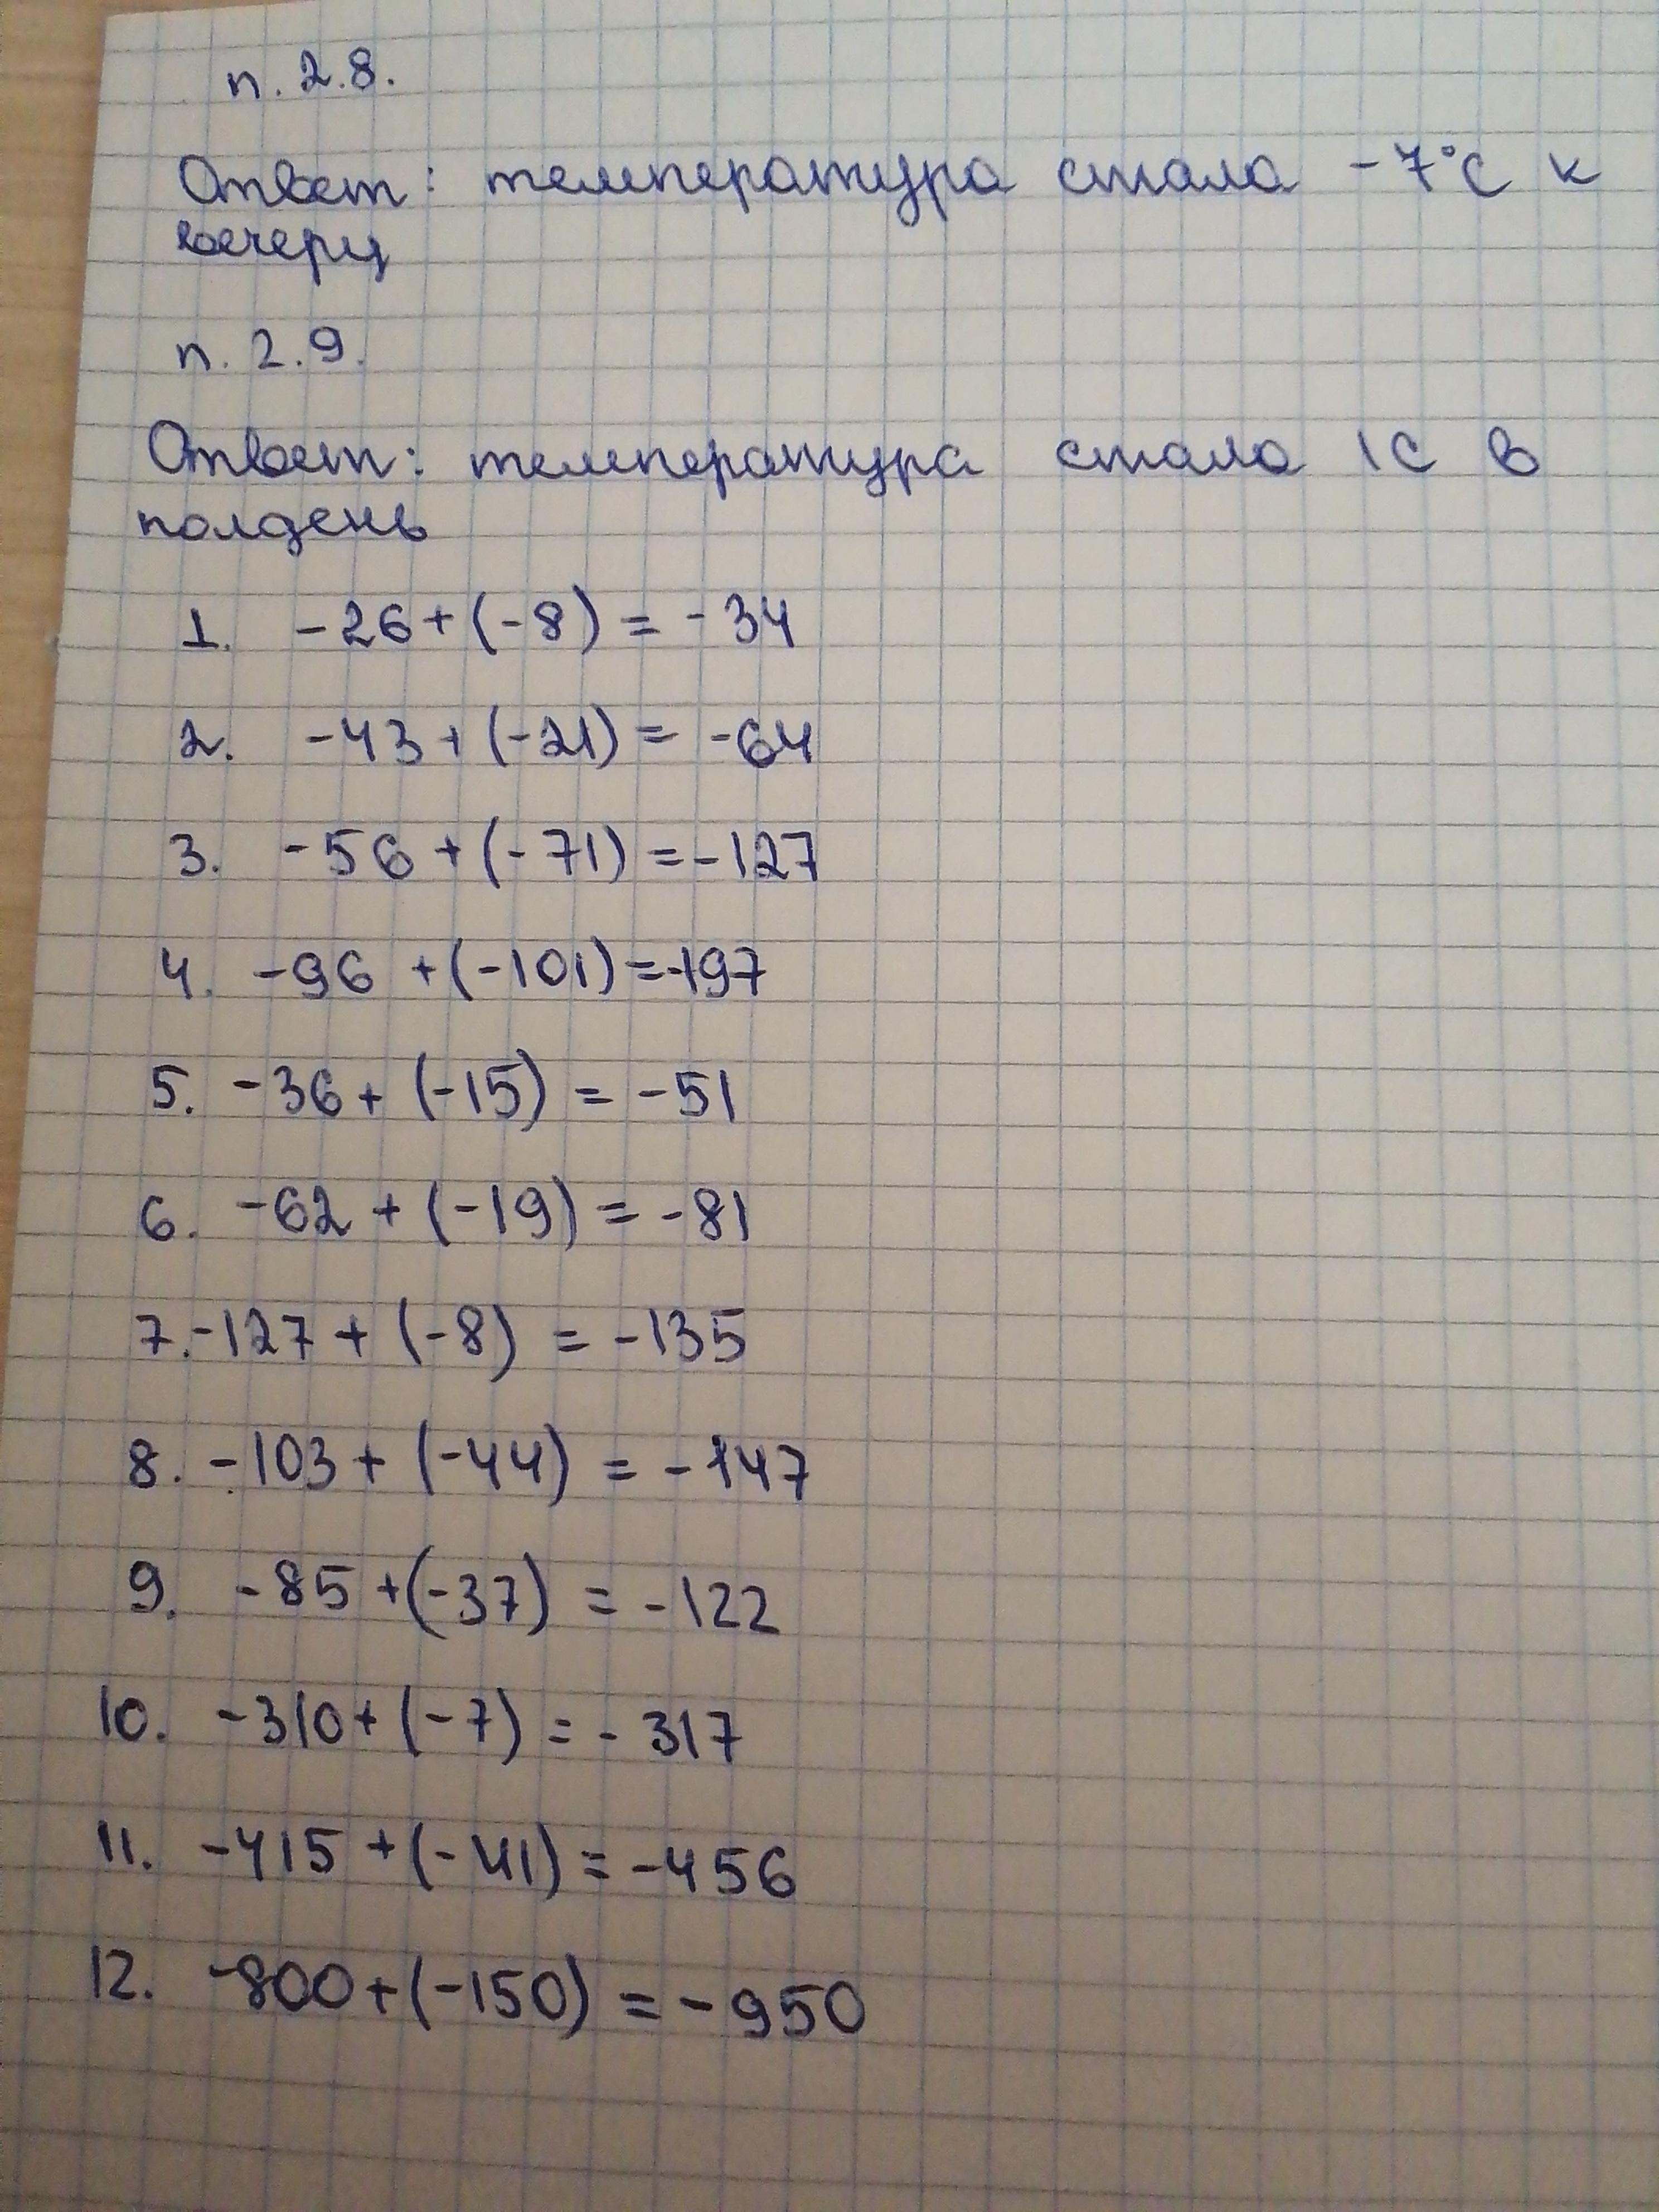 п. 2.8.
Ответ: температура стала -7°C к
вечеру
п. 2.9.
Ответ: температура стала 1C в
полдень
1. -26+(-8) = -34
2. -43+(-21) = -64
3. -56+(-71) =-127
4. -96 +(-101)=-197
5. -36+ (-15) = -51
6. -62 + (-19) = -81
7.-127 + (-8) = -135
8. -103+ (-44) = -147
9. -85 +(-37) = -122
10. -310+(-7) = - 317
11. -415 +(-41) = -456
12. -800+(-150) = -950